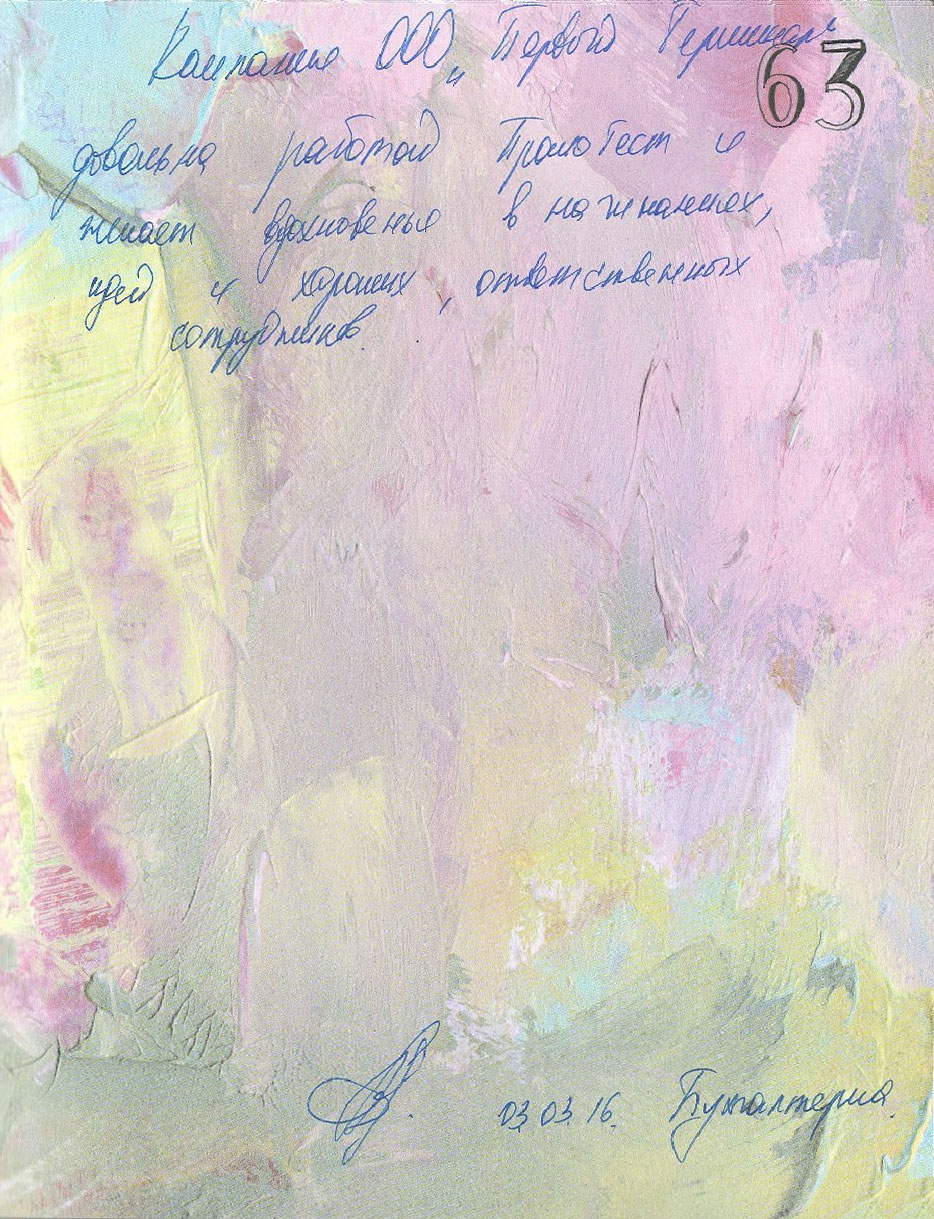 Компания ООО „Первый Терминал"
63
довольна работой ПромоТест и
желает вдохновенье в начинаниях,
идей и хороших, ответственных
сотрудников.
03.03.16. Бухгалтерия.